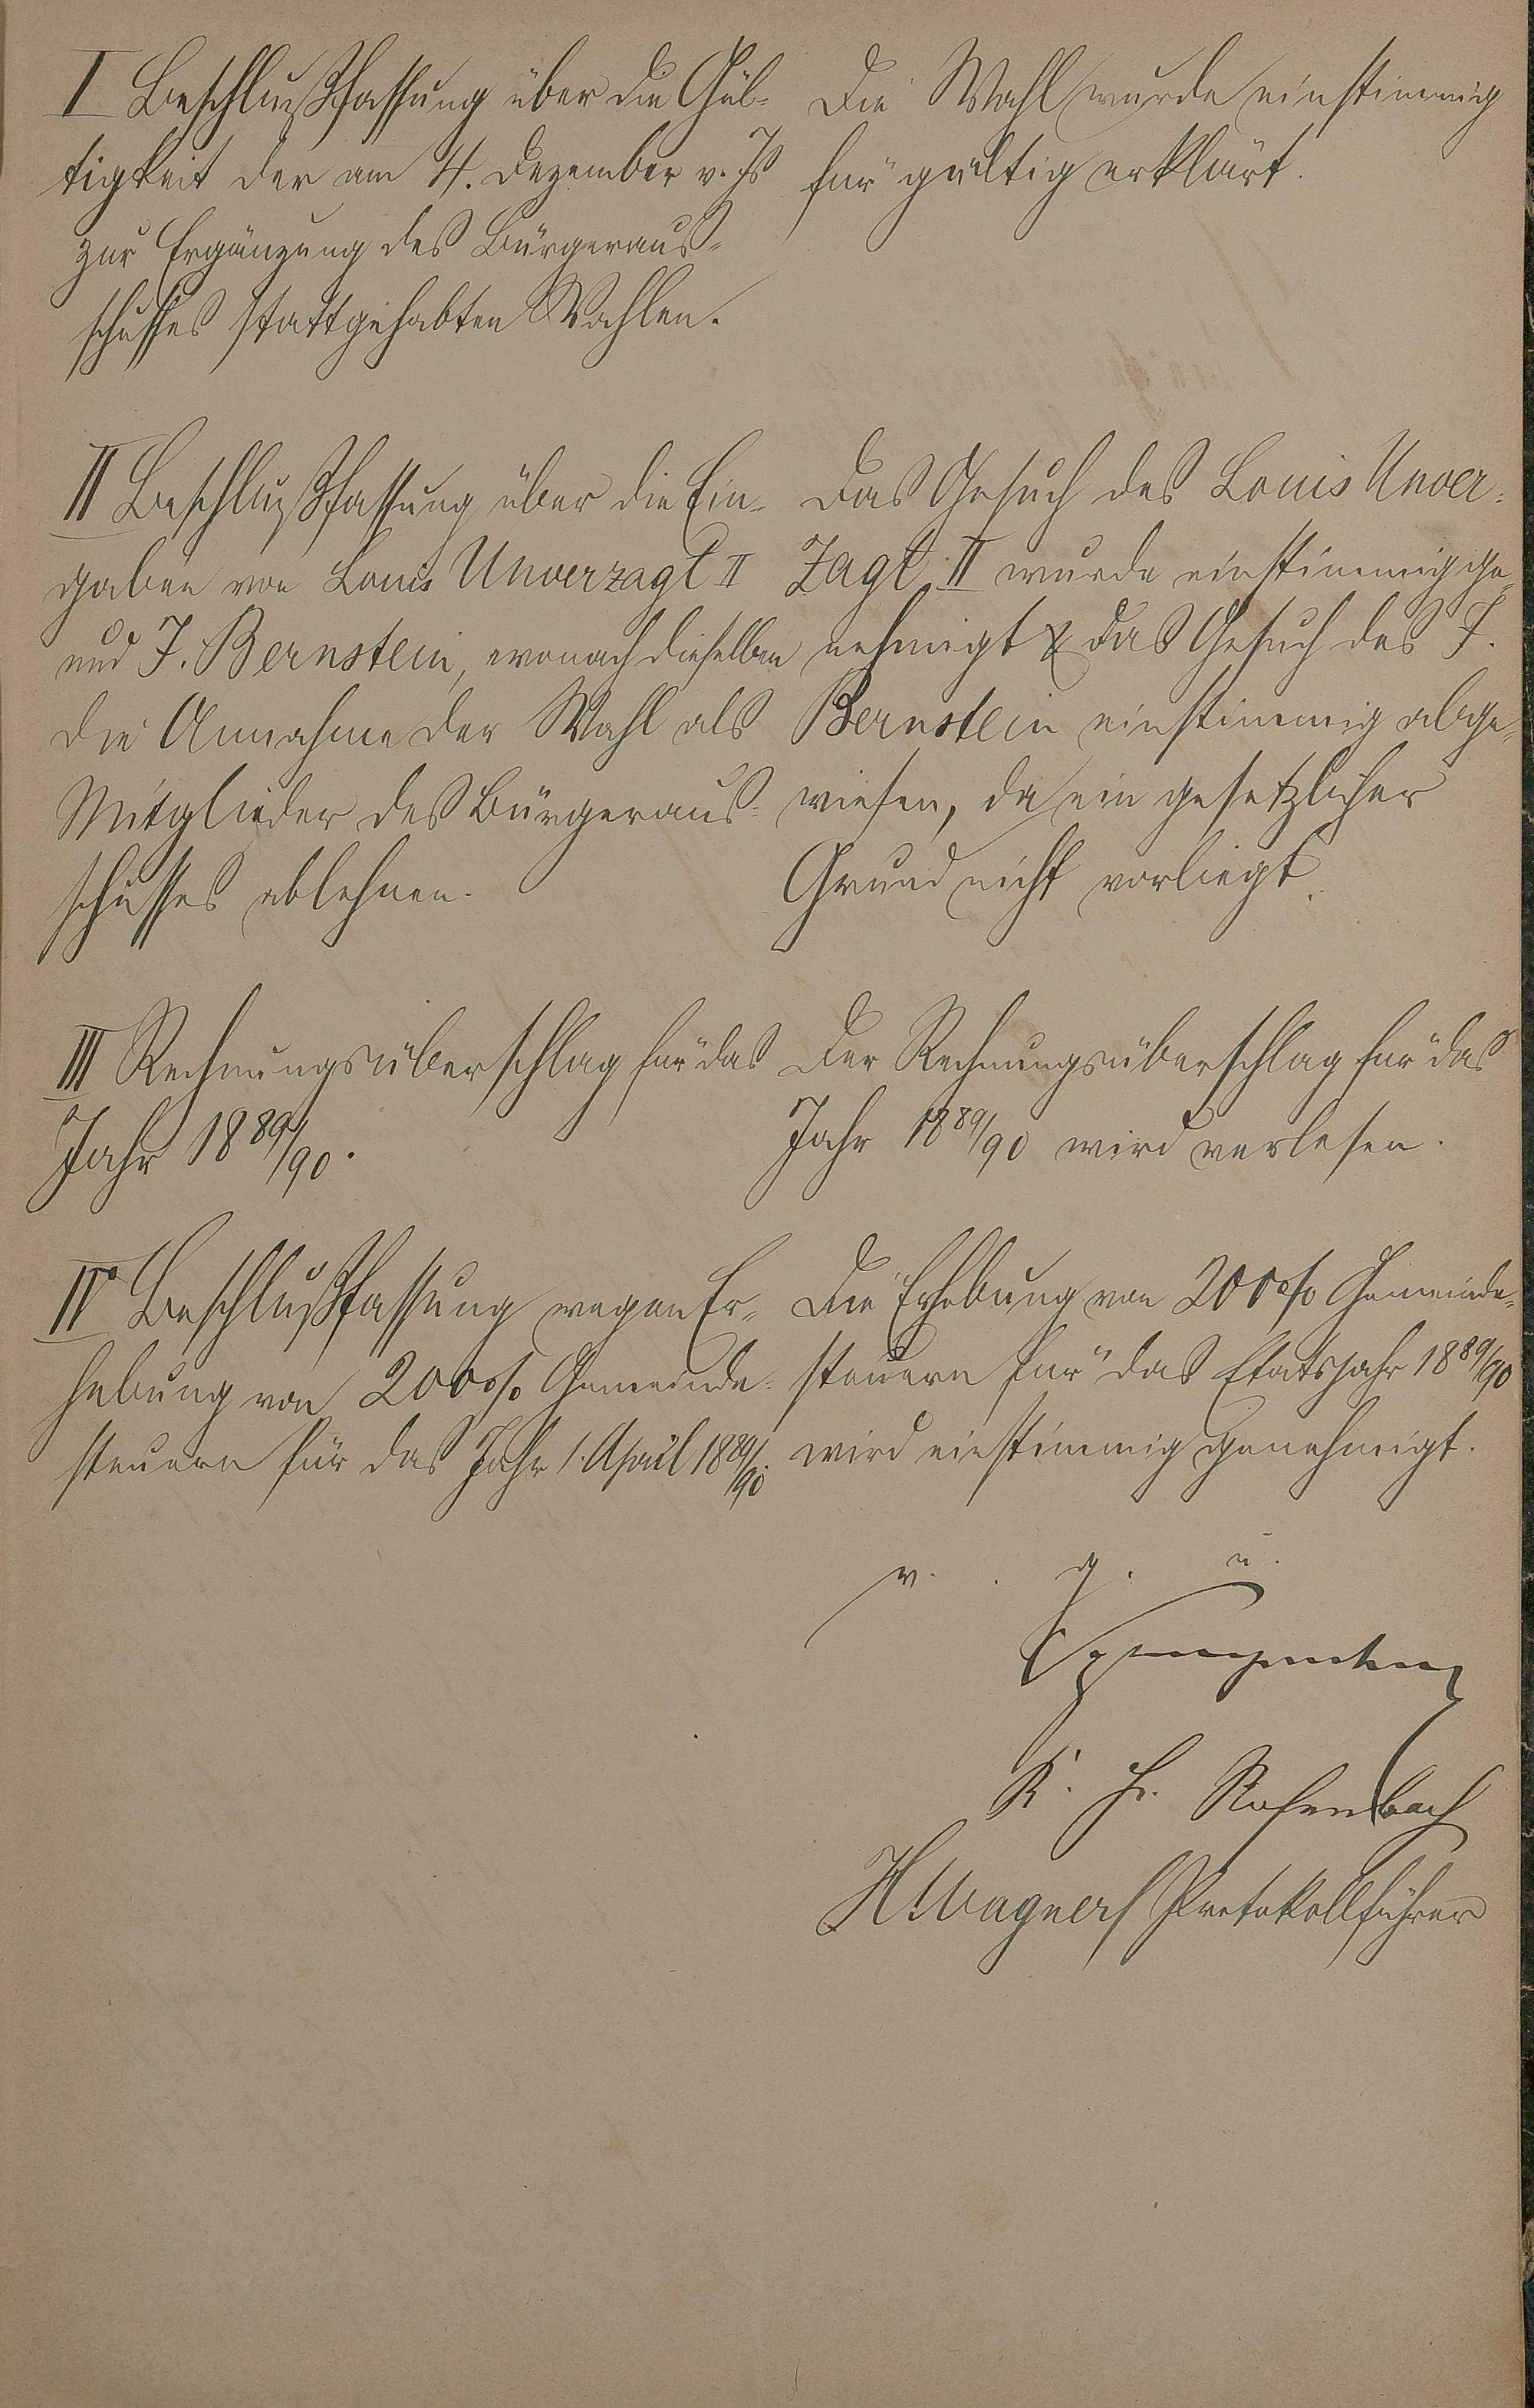 I Beschlußfassung über die Gül-
tigkeit der am 4. Dezember v. Js
zur Ergänzung des Bürgeraus-
schusses stattgehabten Wahlen.
Die Wahl wurde einstimmig
für gültig erklärt.
II Beschlußfassung über die Ein-
gaben von Louis Unverzagt II
und J. Bernstein, wonach dieselben
die Annahme der Wahl als
Mitglieder des Bürgeraus-
schusses ablehnen.
Das Gesuch des Louis Unver-
zagt II wurde einstimmig ge-
nehmigt & das Gesuch des J.
Bernstein einstimmig abge-
wiesen, da ein gesetzlicher
Grund nicht vorliegt.
III Rechnungsüberschlag für das
Jahr 1889/90.
Der Rechnungsüberschlag für das
Jahr 1889/90 wird verlesen.
IV Beschlußfassung wegen Er-
hebung von 200% Gemeinde-
steuern für das Jahr 1. April 1889/90.
Die Erhebung von 200% Gemeinde-
steuern für das Etatsjahr 1889/90
wird einstimmig genehmigt.
v. . g. u.
K. H. Rosenbach
H Wagner Protokollführer